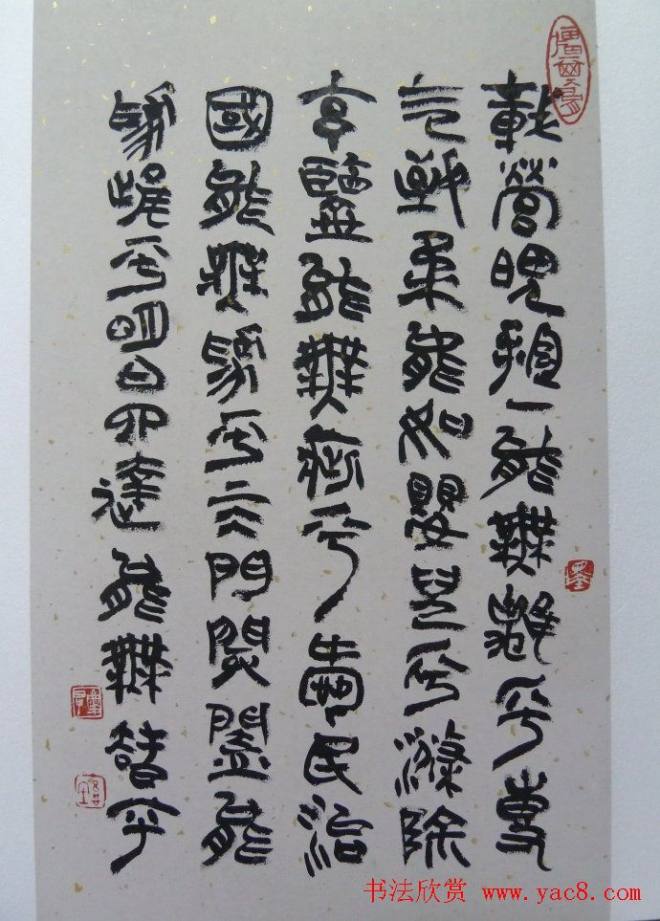 載營魄抱一能無離乎專
气致柔能如嬰兒乎滌除
玄鑒能無疵乎愛民治
國能無為乎天門開闔能
為雌乎明白四達能無智乎
书法欣赏 www.yac8.com